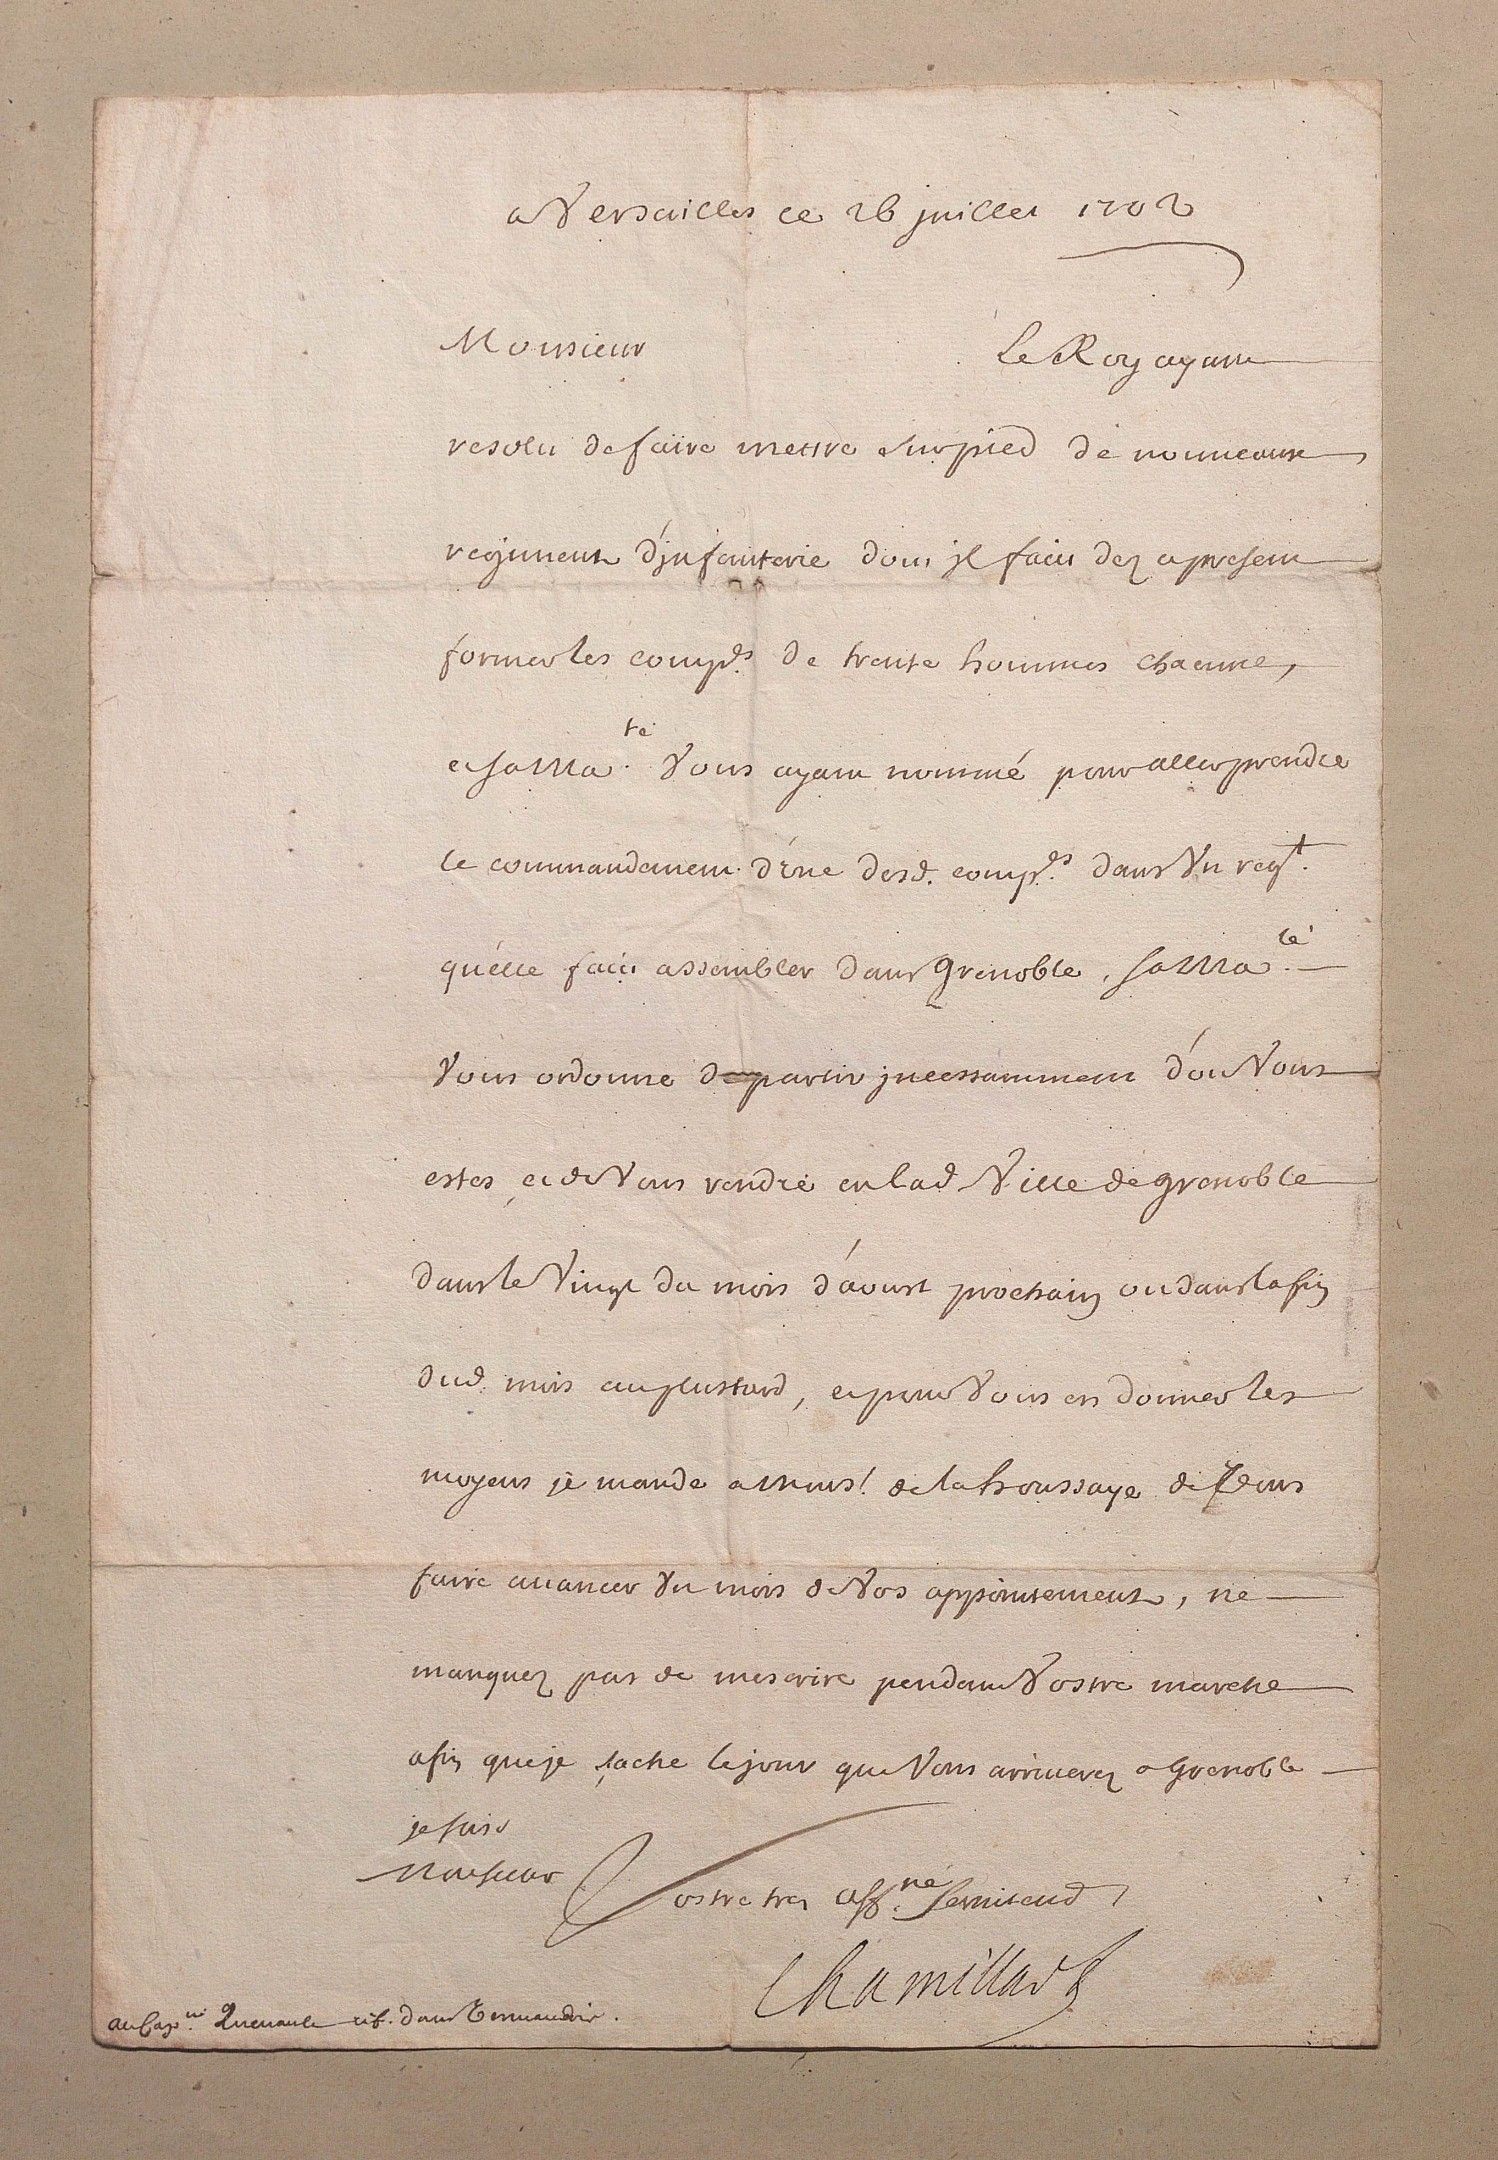 a Versailles ce 26 juillet 1702
Monsieur Le Roy ayant
resolu de faire mettre sur pied de nouueaux
regiments d'jnfanterie dont jl fait dez a present
former les comp.es de trente hommes chacune,
et sa Ma.té Vous ayant nommé pour aller prendre
le commandement d'Vne desd. comp.es dans Vn reg.t
qu'elle fait assembler dans Grenoble, sa Ma.té
Vous ordonne de partir jncessamment d'ou Vous
estes et de Vous rendre en lad Ville de Grenoble
dans le Vingt du mois d'aoust prochain ou dans la fin
dud. mois au plus tard, et pour Vous en donner les
moyens je mande a Mons.r de la houssaye de Vous
faire auancer Vn mois de Vos appointements, ne
manquez pas de mescrire pendant Vostre marche
afin que je sache le jour que Vous arriuerez a Grenoble
je suis
Monsieur Vostre tres aff.né seruiteur
Chamillart
au Cap.ne Queuault ref. dans